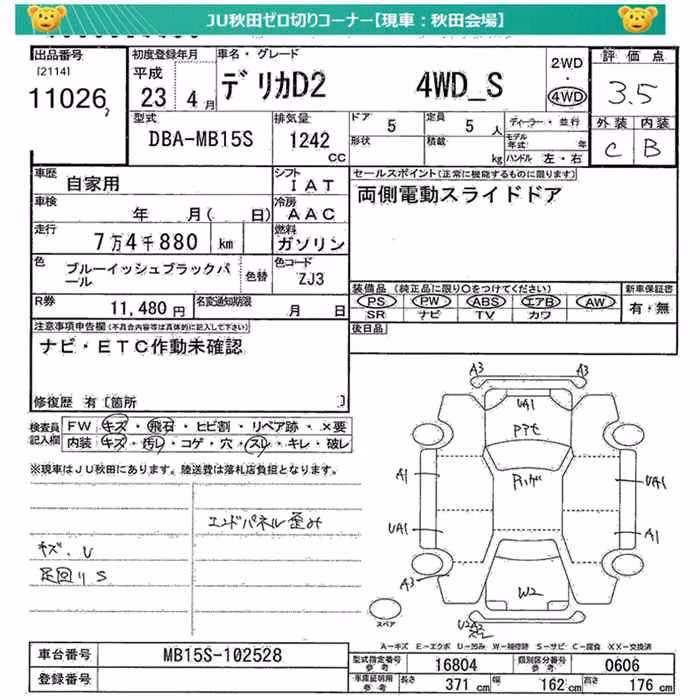 JU秋田ゼロ切りコーナー【現車：秋田会場】
出品番号
[2114]
11026
初度登録年月
平成
23年 4月
車名・グレード
デリカD2 4WD_S
2WD
・
4WD
評価点
3.5
外装 内装
C B
型式
DBA-MB15S
排気量
1242
CC
ドア
5
定員
5人
形状
積載
kg
ディーラー・並行
モデル年式 年
ハンドル 左・右
車歴
自家用
シフト
IAT
車検
年 月( 日)
冷房
AAC
走行
7万4千880 km
燃料
ガソリン
色
ブルーイッシュブラックパール
色替
色コード
ZJ3
R券
11,480 円
名変通知期限
月 日
セールスポイント(正常に機能するものに限ります)
両側電動スライドドア
装備品(純正品に限り○をつけてください)
PS PW ABS エアB AW
SR ナビ TV カワ
新車保証書
有・無
後日品
注意事項申告欄(不具合内容等は具体的に記入して下さい)
ナビ・ETC作動未確認
修復歴 有 [箇所 ]
検査員記入欄
FW キズ・飛石・ヒビ割・リペア跡・×要
内装 キズ・汚レ・コゲ・穴・スレ・キレ・破レ
※現車はJU秋田にあります。陸送費は落札店負担となります。
エンドパネル歪み
キズ、U
足回りS
A3 A3
UA1
Pアセ
A1
UA1
UA1
A1
A3
W2
U2A2
スペア
A=キズ E=エクボ U=凹み W=補修跡 S=サビ C=腐食 XX=交換済
車台番号
MB15S-102528
登録番号
型式指定番号
参考
16804
類別区分番号
参考
0606
車庫証明用
参考
長さ 371 cm 幅 162 cm 高さ 176 cm